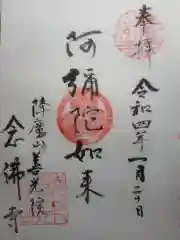 奉拝
令和四年一月二日
阿彌陀如来
降魔山善光院
念佛寺